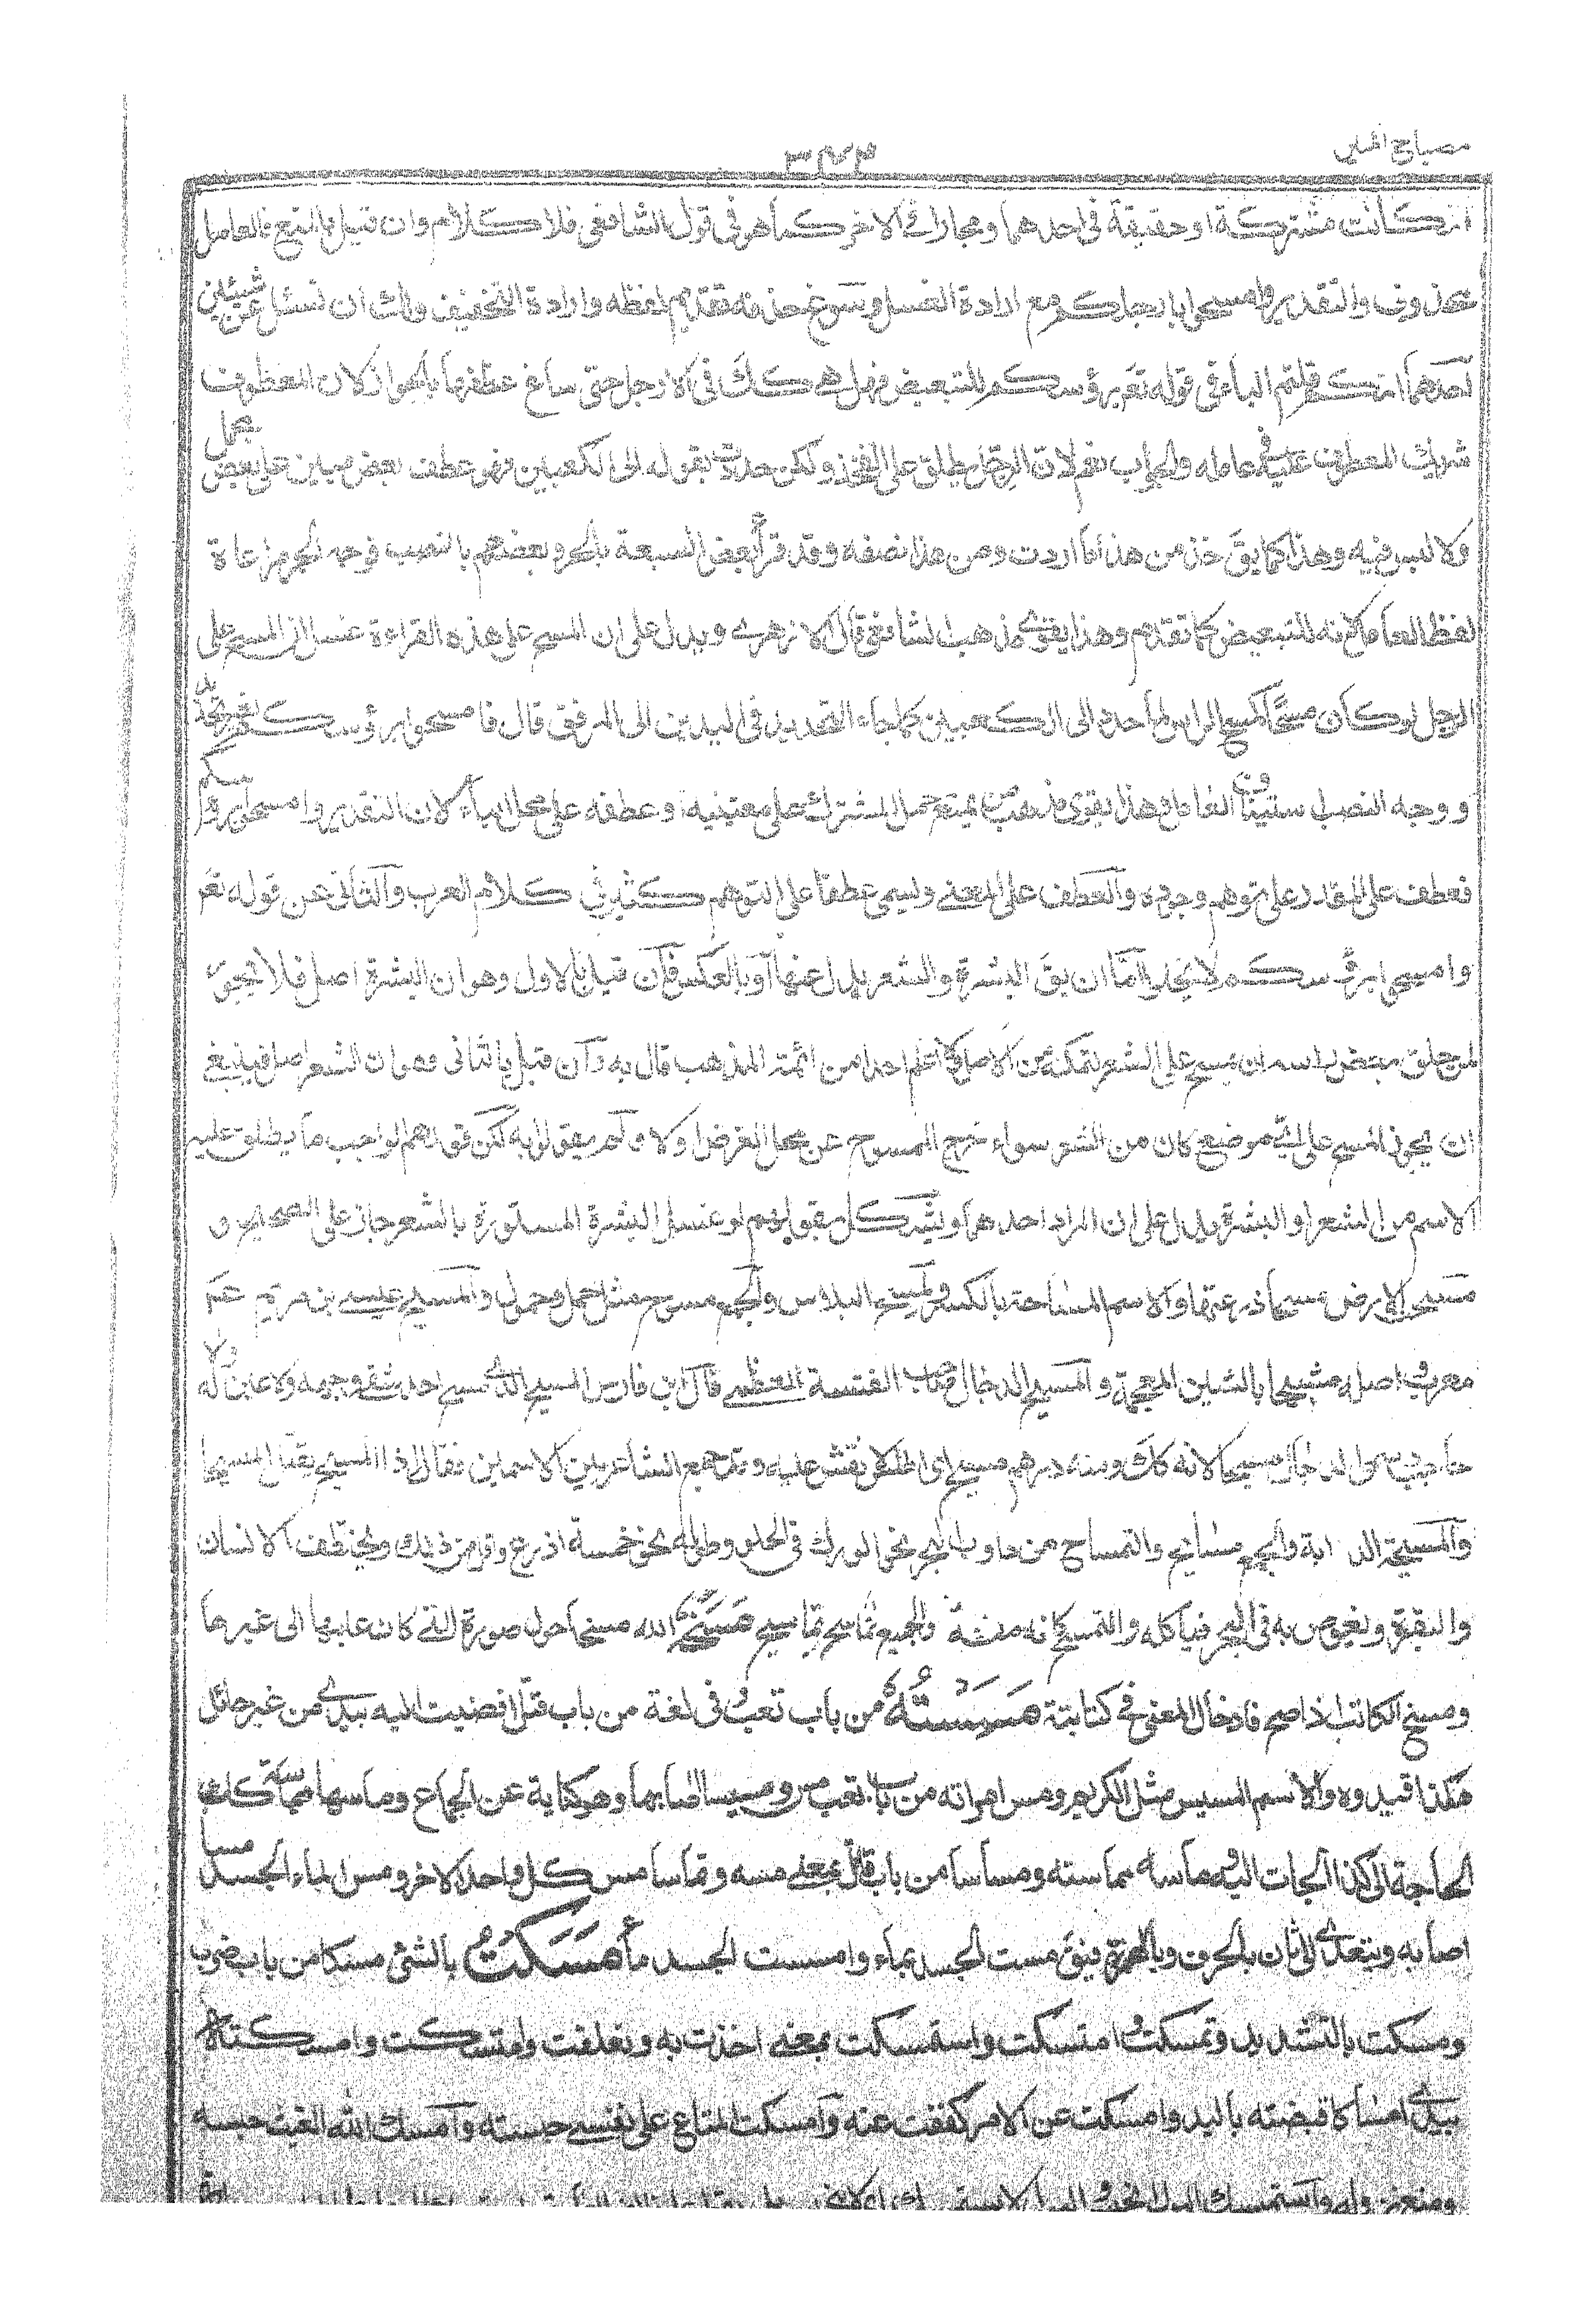 مصباح المنير
٣٤٣
ان كانت مشتركة او حقيقة فى احدهما ومجازا فى الاخر كما هو فى قول الشافعى فلا كلام وان قيل بالتبع فالعامل
محذوف والتقدير وامسحوا بارجلكم مع ارادة الغسل وسوغ حذفه تقديم لفظه وارادة التخفيف ولك ان تسئل عن شيئين
احدهما انكم قلتم الباء فى قوله تعم برؤسكم للتبعيض فهل هى كك فى الارجل حتى ساغ عطفها بالجر لان المعطوف
شريك المعطوف عليه فى عامله والجواب نعم لان الرجل يطلق على الفخذ ولكن حددت بقوله الى الكعبين فهو عطف بعض مبين على بعض مجمل
ولا لبس فيه وهذا كما يق خذ من هذا ما اردت ومن هذا نصفه وقد قرأ بعض السبعة بالجر وبعضهم بالنصب فوجه الجر مراعاة
لفظ العامل لانه للتبعيض كما تقدم وهذا يقوى مذهب الشافعى قال الازهرى ويدل على ان المسح على هذه القراءة غسل ان المسح على
الرجل لو كان مسحا كمسح الراس لما حدد الى الكعبين كما جاء التحديد فى اليدين الى المرفق قال فامسحوا برؤسكم بغير تحديد
ووجه النصب استيناف العامل وهذا يقوى مذهب من يمنع حمل المشترك على معنييه او عطفه على محل الباء لان التقدير وامسحوا برؤسكم
فعطف على المقدر على توهم وجوده والعطف على المعنى ويسمى عطفا على التوهم كثير فى كلام العرب والثانى عن قوله تعم
وامسحوا برؤسكم لا يخلو اما ان يق البشرة والشعر بدل عنها او بالعكس فان قيل بالاول وهو ان البشرة اصل فلا يجوز
لمن حلق بعض راسه ان يمسح على الشعر لتمكنه من الاصل ولا اعلم احدا من ائمة المذهب قال به وان قيل بالثانى وهو ان الشعر اصل فينبغى
ان يجوز المسح على اى موضع كان من الشعر سواء خرج الممسوح عن محل الفرض او لا ولم يقولوا به لكن قولهم الواجب ما يطلق عليه
الاسم من الشعر او البشرة يدل على ان المراد احدهما ويشكل بقولهم لو غسل البشرة المستورة بالشعر جاز على الصحيح و
مسحت الارض مسحا ذرعتها والاسم المساحة بالكسر والمسح البلاس والجمع مسوح مثل حمل وحمول والمسيح عيسى بن مريم عم
معرب اصله مشيحا بالشين المعجمة والمسيح الدجال صاحب الفتنة العظمى قال ابن فارس المسيح الذى مسح احد شقى وجهه ولا عين له ولا
حاجب سمى الدجال مسيحا لانه كك ومنه درهم مسيح اى اطلس لا نقش عليه وقد جمع الشاعر بين الاسمين فقال اذا المسيح يقتل المسيحا
والمسيحة الدابة والجمع مسائح والتمساح من دواب البحر نحو الورك فى الخلق وطوله نحو خمسة اذرع واقل من ذلك ويخطف الانسان
والبقرة ويغوص به فى البحر فيأكله والتمسح كانه منه والجمع تماسح تماسيح مَسَخَ الله مسخا حول صورة التى كان عليها الى غيرها
ومسخ الكاتب اذا صحف فاحال المعنى فى كتابته مَسِسْتُهُ من باب تعب وفى لغة من باب قتل افضيت اليه بيدى من غير حائل
هكذا قيدوه والاسم المسيس مثل الكريم ومس امراته من باب تعب مسا ومسيسا اصابها وهو كناية عن الجماع وماسها مماسة كك ومست
الحاجة الى كذا الجأت اليه وماسه مماسته ومساسا من باب قاتل بمعنى مسه وتماسا مس كل واحد الاخر ومس الماء الجسد مسا
اصابه ويتعدى الى ثان بالحرف وبالهمزة فيق مست الجسد بماء وامسست الجسد ماء مَسَكْتُ بالشئ مسكا من باب ضرب
ومسكت بالتشديد وتمسكت وامتسكت واستمسكت بمعنى اخذت به وتعلقت وامتسكت وامسكته
بيدى امساكا قبضته باليد وامسكت عن الامر كففت عنه وامسكت المتاع على نفسى حبسته وامسك الله الغيث حبسه
ومنع نزوله واستمسك البول انحبس